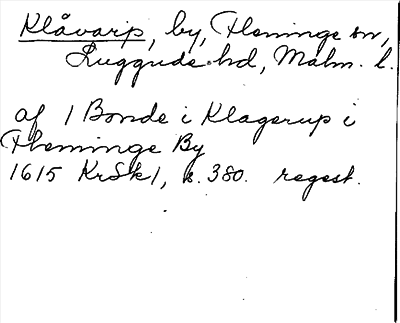 Klåvarp, by, Fleninge sn,
Luggude hd, Malm. l.
af 1 Bonde i Klagerup i
Fleminge By
1615 KrSk1, s. 380. regest.